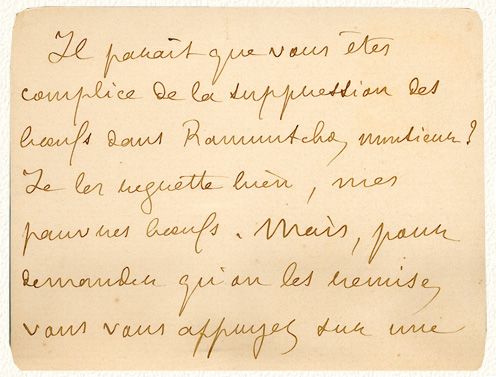 Il paraît que vous êtes
complice de la suppression des
bœufs dans Ramuntcho, monsieur?
Je les regrette bien, mes
pauvres bœufs. Mais, pour
demander qu'on les remise,
vous vous appuyez sur une